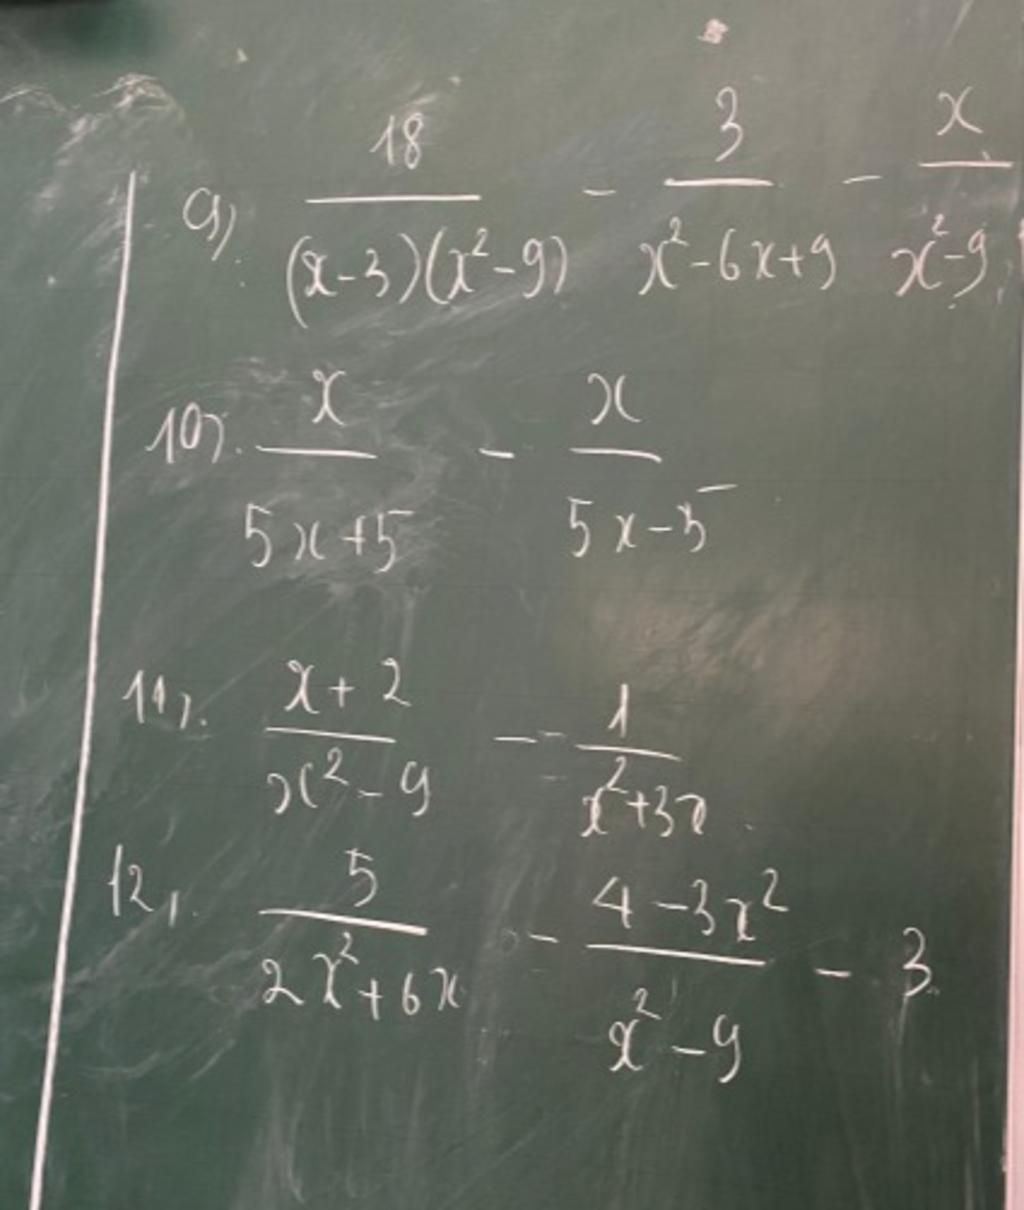 9). 18/((x-3)(x²-9)) - 3/(x²-6x+9) - x/(x²-9)
10). x/(5x+5) - x/(5x-5)
11). (x+2)/(x²-9) - 1/(x²+3x)
12). 5/(2x²+6x) - (4-3x²)/(x²-9) - 3